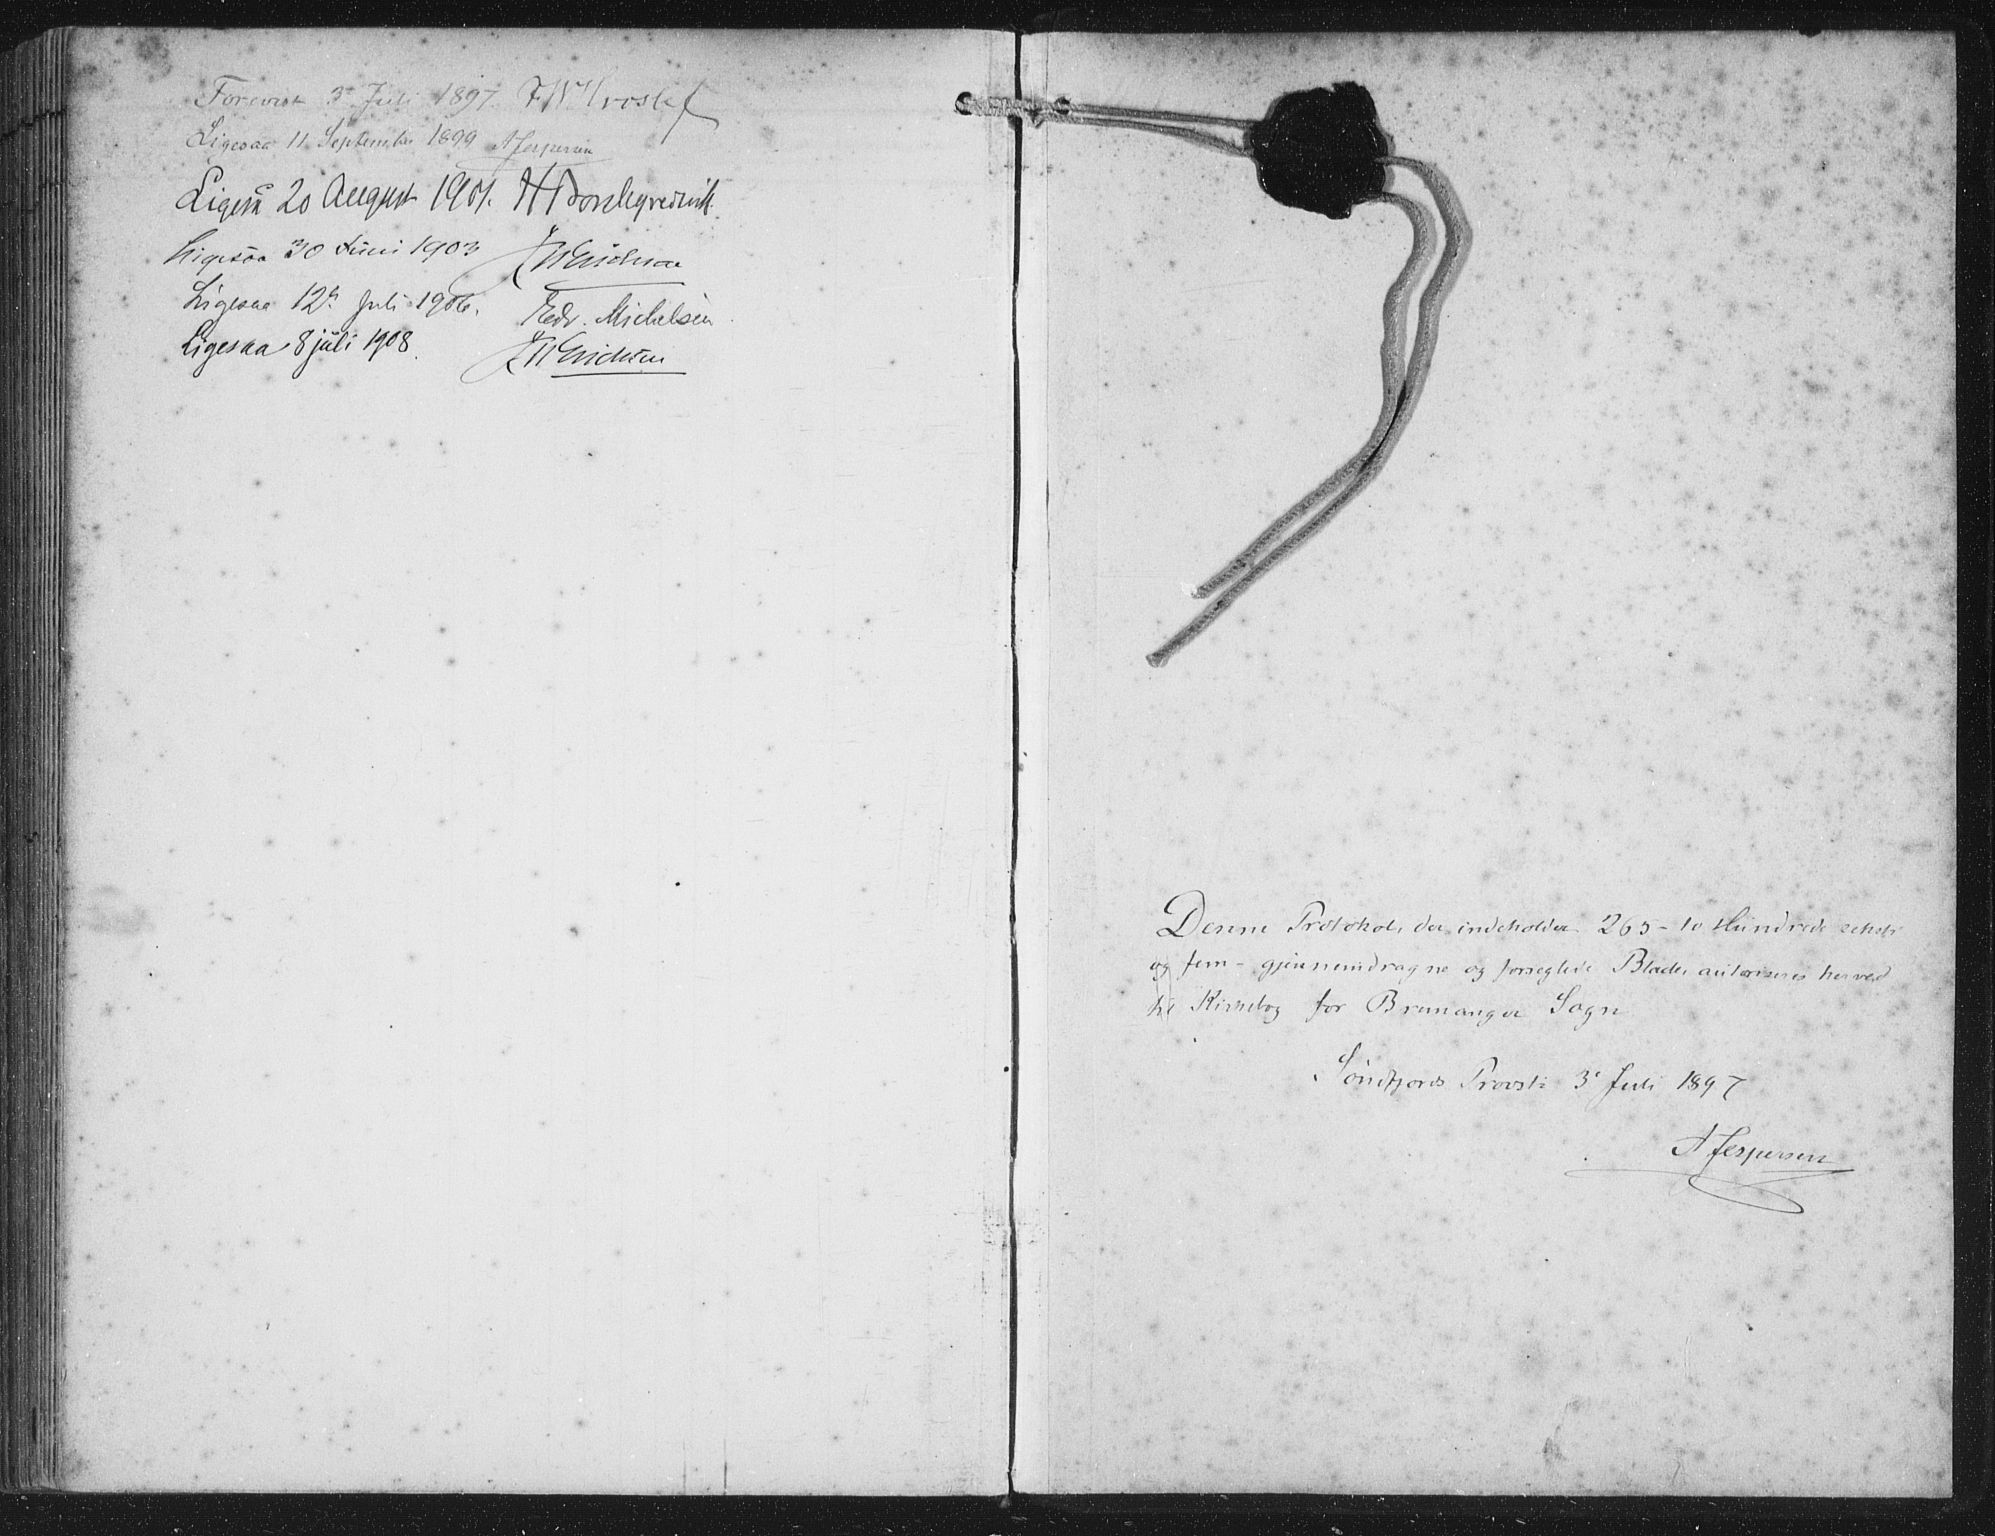 Forevist 3' Juli 1897.
Ligesaa 11 September 1899 A Jespersen
Ligeså 20 August 1901.
Ligesaa 30 Juni 1903
Ligesaa 12te Juli 1906. Fedr. Michelsen
Ligesaa 8 juli 1908.
Denne Protokol, der indeholder 265 - to Hundrede seksti
og fem - gjennemdragne og forseglede Blade, autoriseres herved
til Kirkebog for Bremanger Sogn
Söndfjords Provsti 3' Juli 1897
A Jespersen